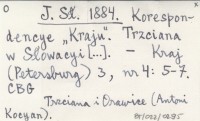 O J. St. 1884. Korespon-
dencye „Kraju". Trzciana
w Słowacyi [...]. - Kraj
(Petersburg) 3, nr 4: 5-7.
CBG
Trzciana i Orawice (Antoni
Kocyan).